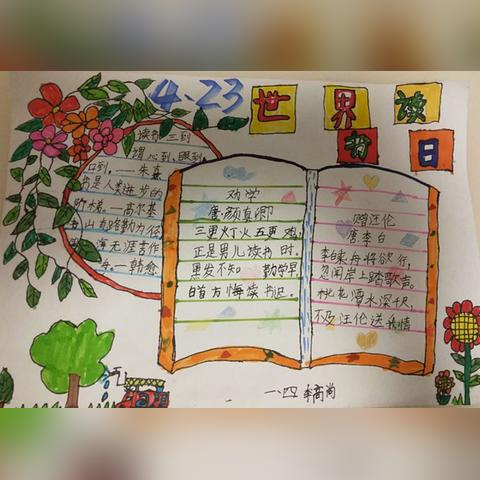 4.23 世界读
书日
读书三到
谓心到、眼到
口到。——朱熹
书是人类进步的
阶梯。—高尔基
书山有路勤为径
海无涯苦作
舟—韩愈
劝学
唐·颜真卿
三更灯火五更鸡,
正是男儿读书时。
黑发不知 勤学早
白首方悔读书迟。
赠汪伦
唐李白
李白乘舟将欲行,
忽闻岸上踏歌声。
桃花潭水深千尺,
不及汪伦送我情
一、四 李高尚